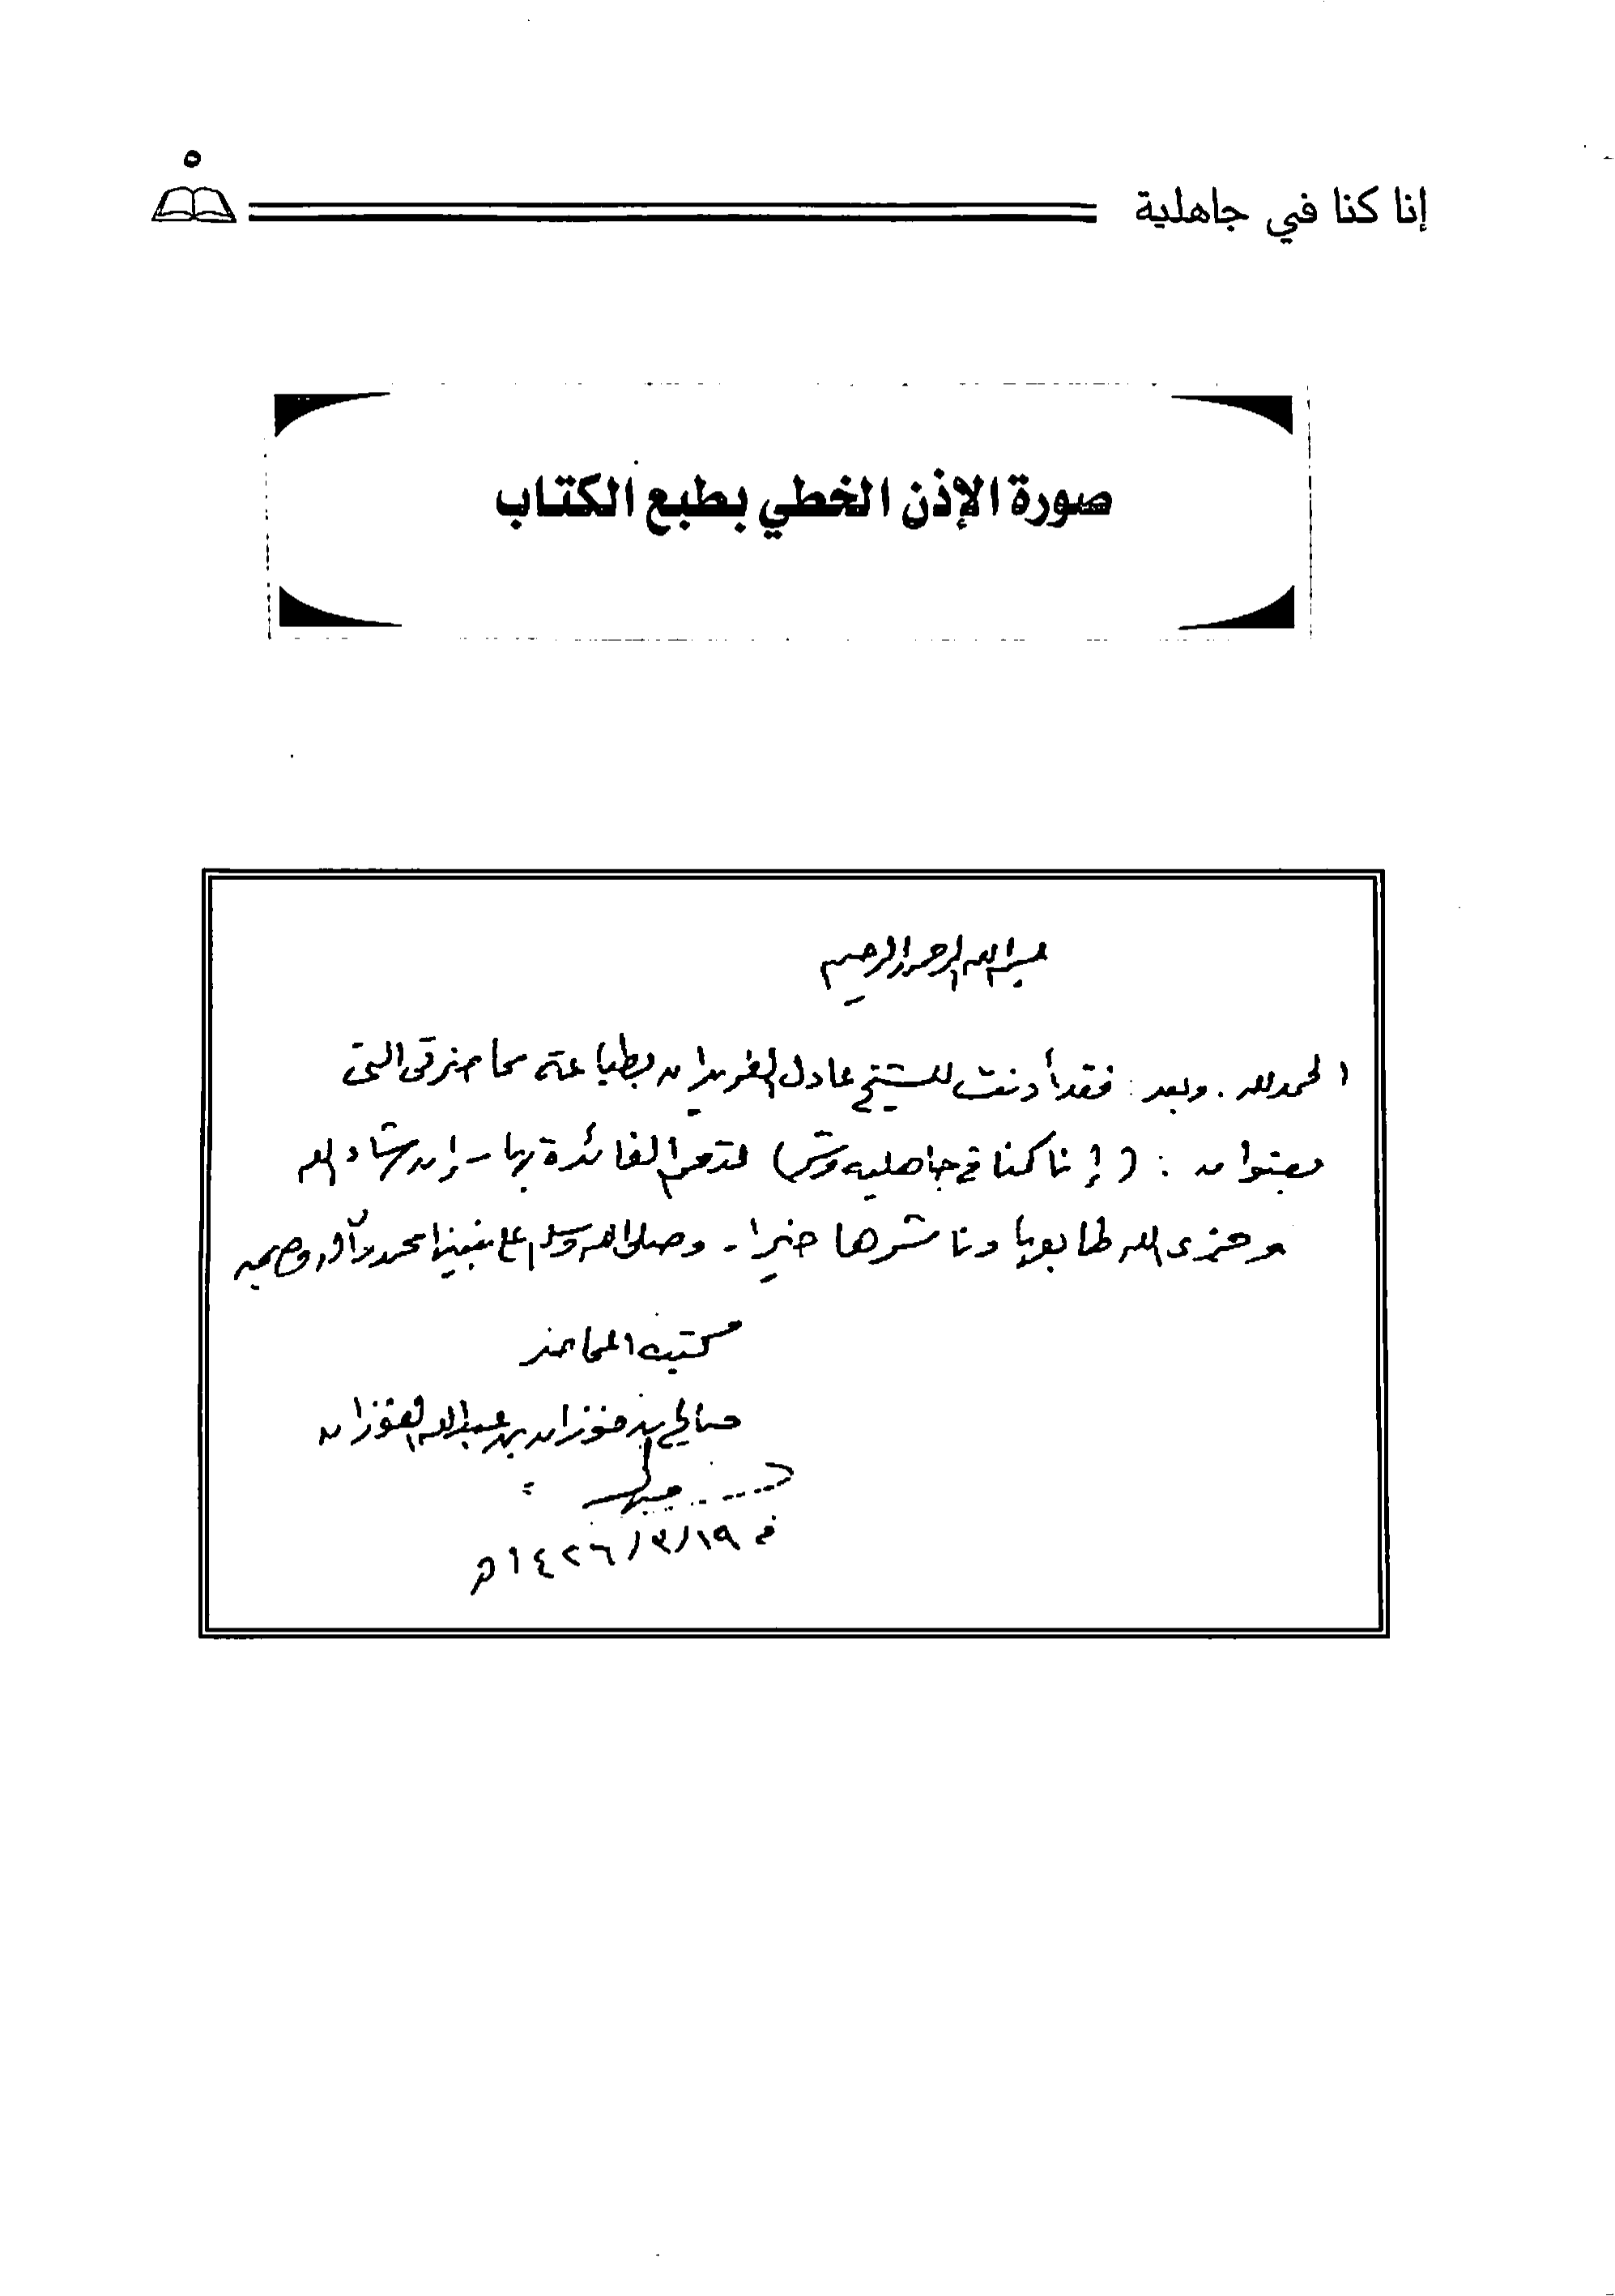 إنا كنا في جاهلية
٥
صورة الإذن الخطي بطبع الكتاب
بسم الله الرحمن الرحيم
الحمد لله . وبعد : فقد أذنت للشيخ عادل الفريدان بطباعة محاضرتي التي
بعنوان : ( إنا كنا في جاهلية وشر ) لتعم الفائدة بها - إن شاء الله
وجزى الله طابعها وناشرها خيرا - وصلى الله وسلم على نبينا محمد وآله وصحبه
كتبه المحاضر
صالح بن فوزان بن عبدالله الفوزان
في ١٩/٣/١٤٢٦هـ